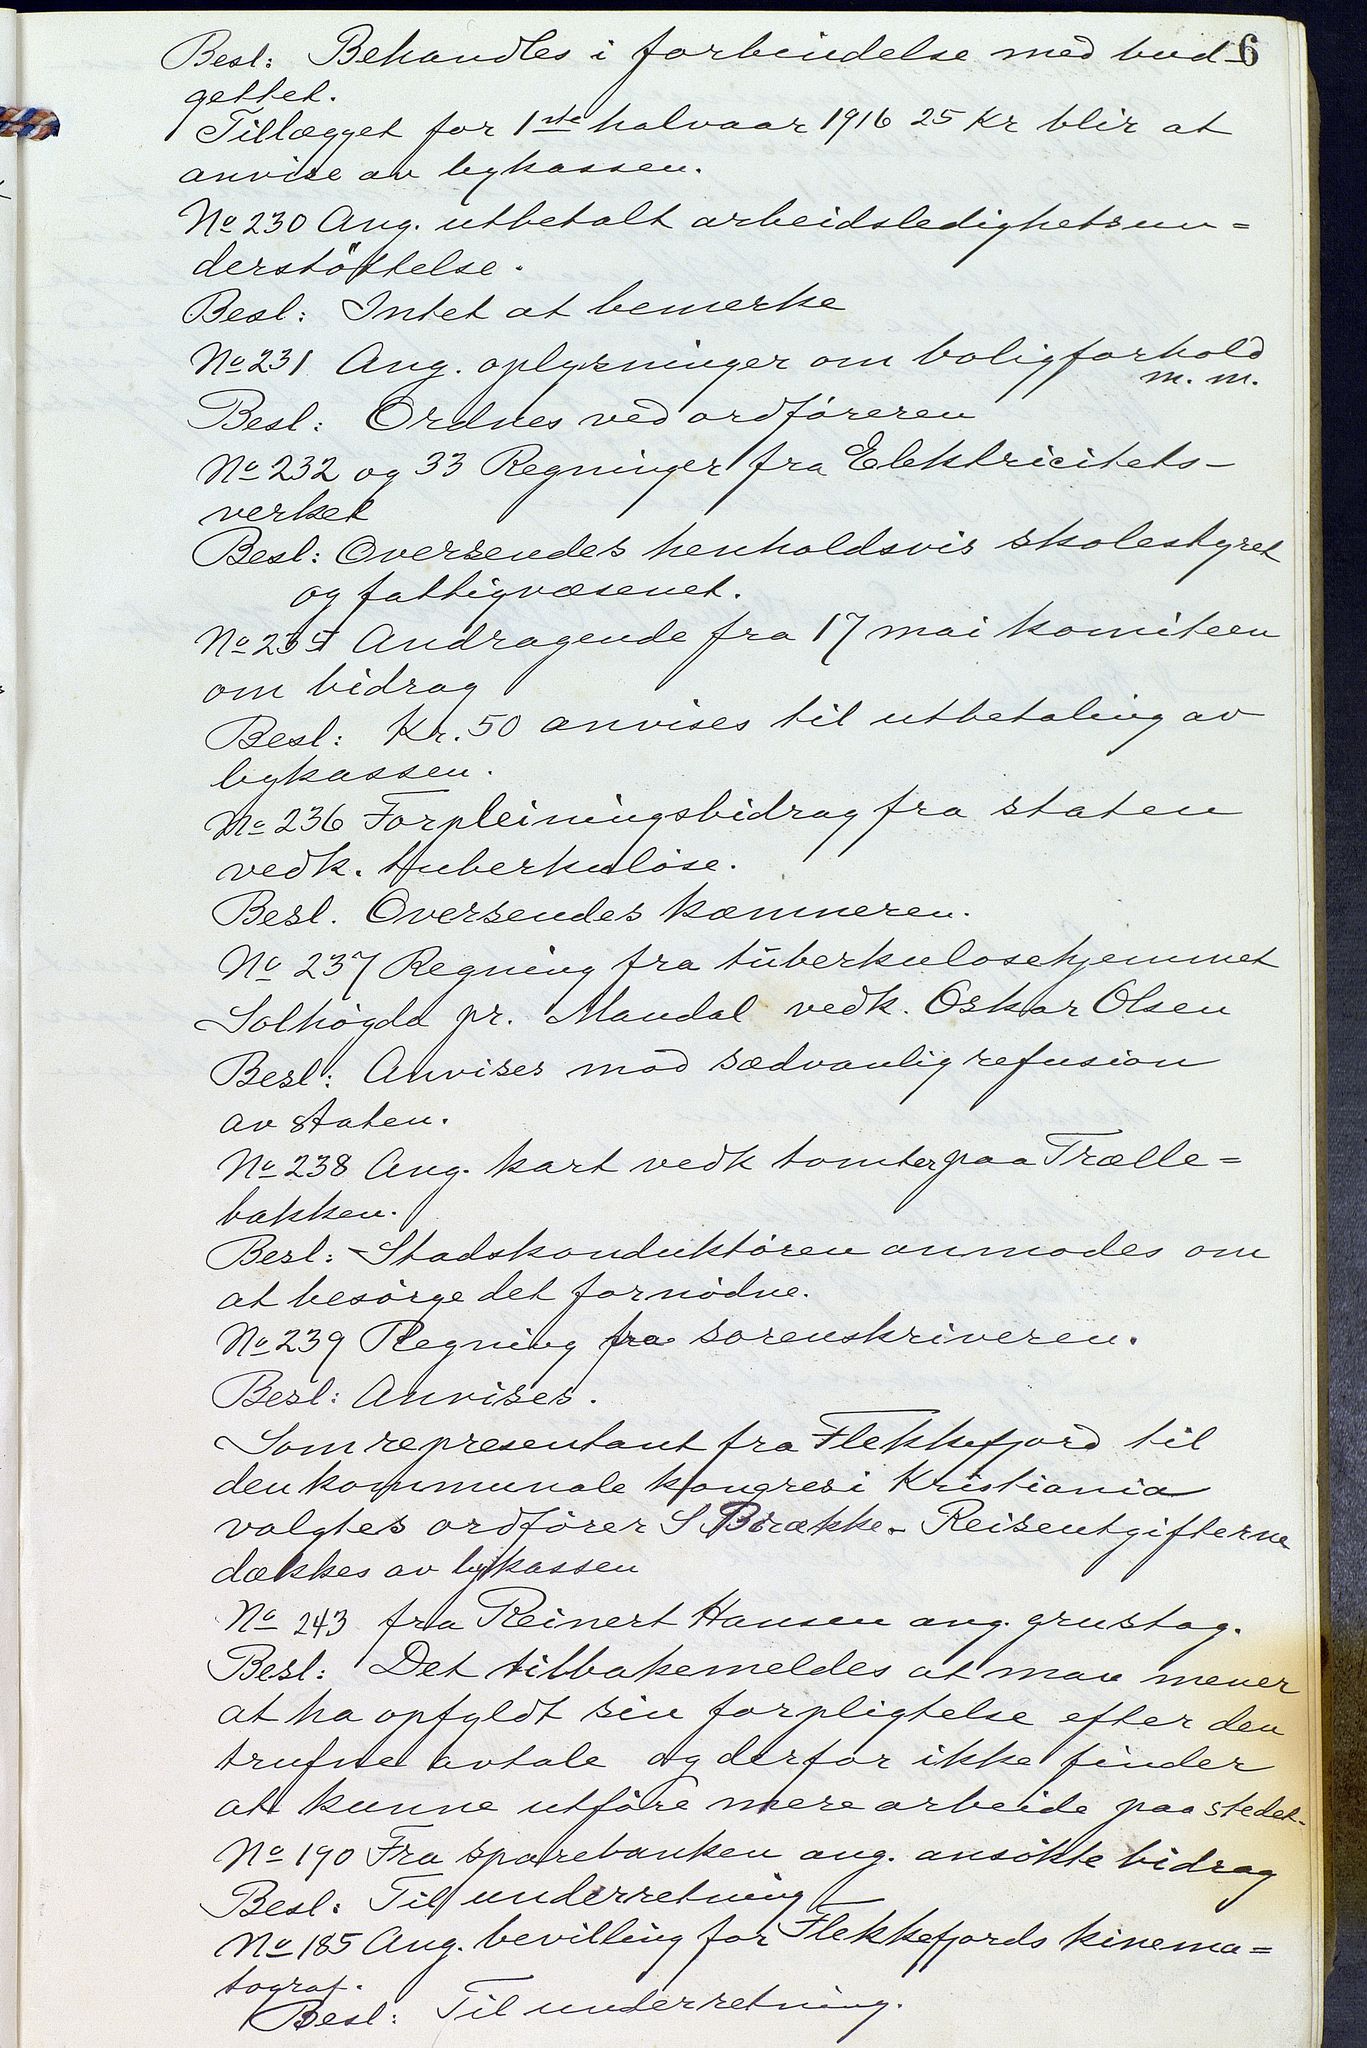 Besl: Behandles i forbindelse med bud- 6
gettet.
Tillægget for 1ste halvaar 1916 25 Kr blir at
anvise av bykassen.
No 230 Ang. utbetalt arbeidsledighetsun=
derstöttelse.
Besl: Intet at bemerke
No 231 Ang. oplysninger om boligforhold
m. m.
Besl: Ordnes ved ordføreren
No 232 og 33 Regninger fra Elektricitets-
verket
Besl: Oversendes henholdsvis skolestyret
og fattigvæsenet.
No 235 Andragende fra 17 mai komiteen
om bidrag
Besl: Kr. 50 anvises til utbetaling av
bykassen.
No 236 Forpleiningsbidrag fra staten
vedk. tuberkuløse.
Besl. Oversendes kæmneren.
No 237 Regning fra tuberkulosehjemmet
Solhøgda pr. Mandal vedk. Oskar Olsen
Besl: Anvises mod sædvanlig refusion
av staten.
No 238 Ang. kart vedk tomter paa Trælle=
bakken.
Besl: Stadskonduktøren anmodes om
at besørge det fornødne.
No 239 Regning fra sorenskriveren.
Besl: Anvises.
Som representant fra Flekkefjord til
den kommunale kongres i Kristiania
valgtes ordfører S. Brække. Reiseutgifterne
dækkes av bykassen
No 243 fra Reinert Hansen ang. grustag.
Besl: Det tilbakemeldes at man mener
at ha opfyldt sin forpligtelse efter den
trufne avtale og derfor ikke finder
at kunne utføre mere arbeide paa stedet.
No 190 Fra sparebanken ang. ansøkte bidrag
Besl: Til underretning
No 185 Ang. bevilling for Flekkefjords kinema=
tograf.
Besl: Til underretning.